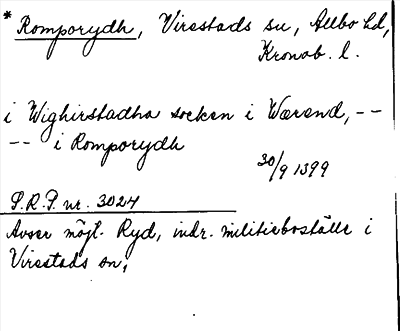 * Romporydh, Virestads sn, Allbo hd,
Kronob. l.
i Wighirstadha socken i Wærend, --
-- i Romporydh
30/9 1399
S.R.P. nr. 3024
Avser möjl. Ryd, indr. militieboställe i
Virestads sn,